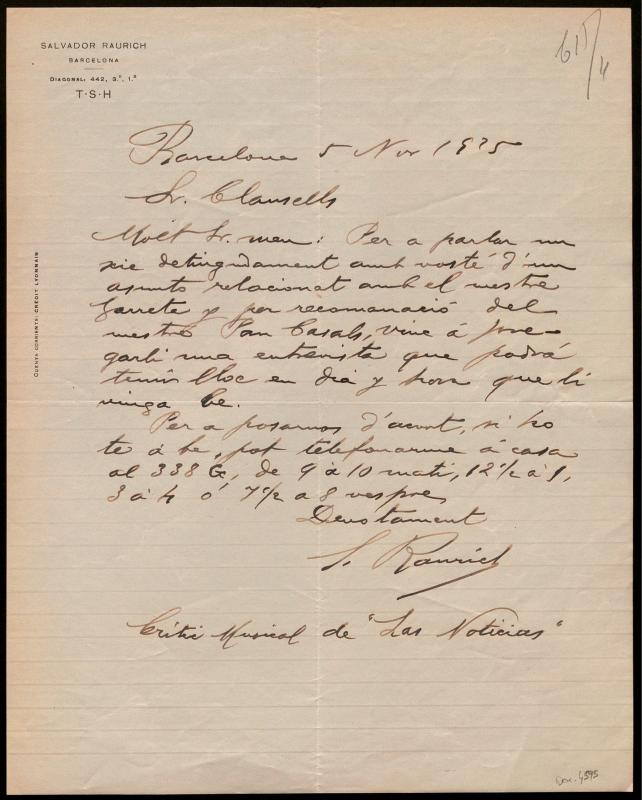 SALVADOR RAURICH
BARCELONA
DIAGONAL: 442, 3.º, 1.ª
T·S·H
615/4
Barcelona 5 Nov 1925
Sr. Clausells
Molt Sr. meu: Per a parlar un
xic detingudament amb vosté d'un
asunto relacionat amb el mestre
Garreta y per recomanació del
mestre Pau Casals, vinc á pre-
garli una entrevista que podrá
tenir lloc en dia y hora que li
vinga be.
Per a posarnos d'acort, si ho
te á be, pot telefonarme á casa
al 338 G, de 9 á 10 matí, 12½ á 1,
3 á 4 ó 7½ a 8 vespre
Devotament
S. Raurich
Crític Musical de "Las Noticias"
CUENTA CORRIENTE: CRÉDIT LYONNAIS
Doc. 4595